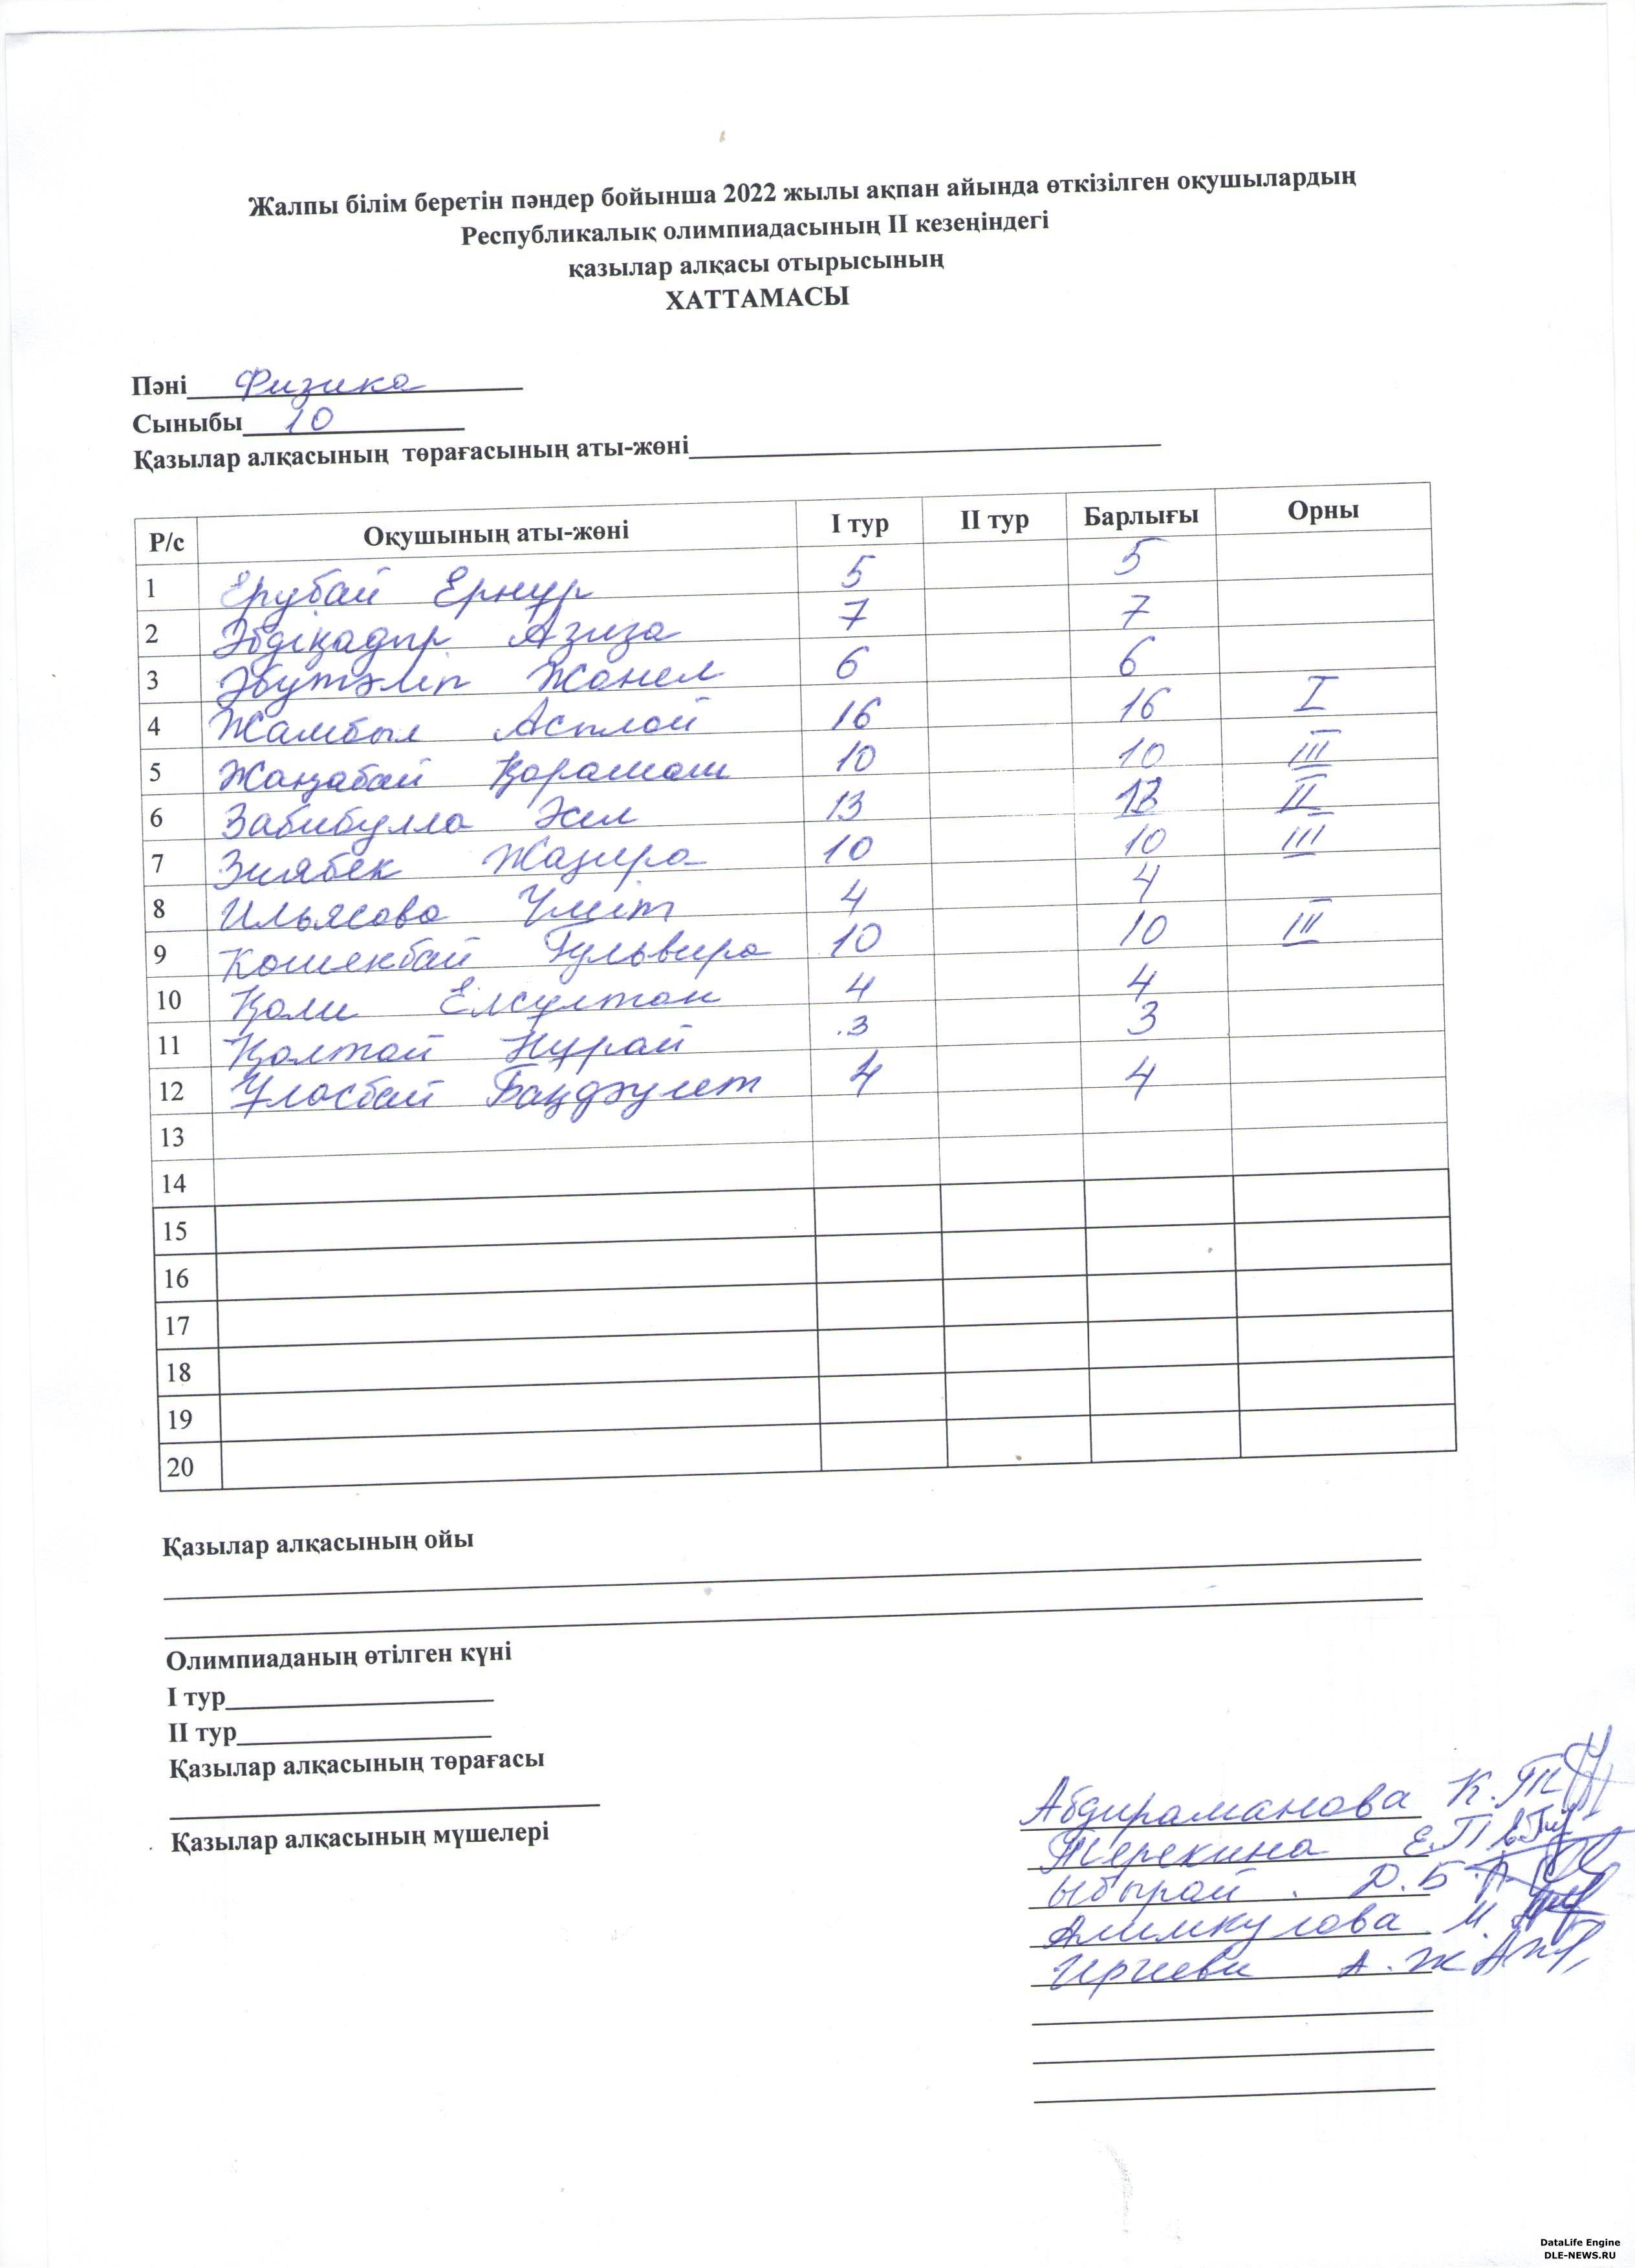 Жалпы білім беретін пәндер бойынша 2022 жылы ақпан айында өткізілген оқушылардың
Республикалық олимпиадасының II кезеңіндегі
қазылар алқасы отырысының
ХАТТАМАСЫ
Пәні Физика
Сыныбы 10
Қазылар алқасының төрағасының аты-жөні
Р/с Оқушының аты-жөні I тур II тур Барлығы Орны
1 Ерубай Ернұр 5 5
2 Әбдіқадір Азиза 7 7
3 Әбутәліп Жанел 6 6
4 Жамбыл Асылай 16 16 I
5 Жаңабай Қарамаш 10 10 III
6 Забибулла Әсел 13 13 II
7 Зиябек Жазира 10 10 III
8 Ильясова Үміт 4 4
9 Кошенбай Гульвира 10 10 III
10 Қали Елсұлтан 4 4
11 Қалтай Нұрай 3 3
12 Ұласбай Бақдәулет 4 4
13
14
15
16
17
18
19
20
Қазылар алқасының ойы
Олимпиаданың өтілген күні
I тур
II тур
Қазылар алқасының төрағасы
Қазылар алқасының мүшелері
Абдираманова К.Т
Терекина Е.П
Ыбырай Д.Б
Алимкулова М.
А.Ж
DataLife Engine
DLE-NEWS.RU